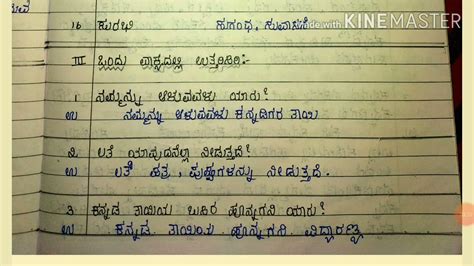 Made with KINEMASTER
16 ಸುರಭಿ ಸುಗಂಧ, ಸುವಾಸನೆ
III ಒಂದು ವಾಕ್ಯದಲ್ಲಿ ಉತ್ತರಿಸಿರಿ:-
1. ನಮ್ಮನ್ನು ಆಳುವವಳು ಯಾರು?
ಉ ನಮ್ಮನ್ನು ಆಳುವವಳು ಕನ್ನಡಿಗರ ತಾಯಿ
2. ಲತೆ ಯಾವುದನೆಲ್ಲಾ ನೀಡುತ್ತದೆ?
ಉ ಲತೆ ಪತ್ರ, ಪುಷ್ಪಗಳನ್ನು ನೀಡುತ್ತದೆ.
3. ಕನ್ನಡ ತಾಯಿಯ ಹೊನ್ನಗನಿ ಯಾರು?
ಉ ಕನ್ನಡ ತಾಯಿಯ ಹೊನ್ನಗನಿ ವಿದ್ಯಾರಣ್ಯ